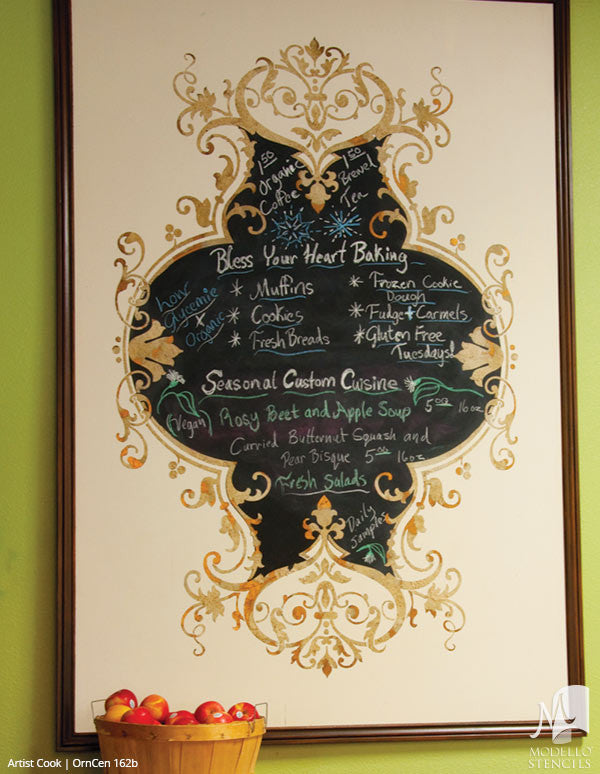 1.50
Organic
Coffee
1.50
Brewed
Tea
Bless Your Heart Baking
Low
Glycemic
x
Organic
* Muffins
* Cookies
* Fresh Breads
* Frozen Cookie
Dough
* Fudge + Carmels
* Gluten Free
Tuesdays!
Seasonal Custom Cuisine
(Vegan)
Rosy Beet and Apple Soup 5.00 16oz
Curried Butternut Squash and
Pear Bisque 5.00 16oz
Fresh Salads
Daily
Samples
Artist Cook | OrnCen 162b
MODELLO®
STENCILS